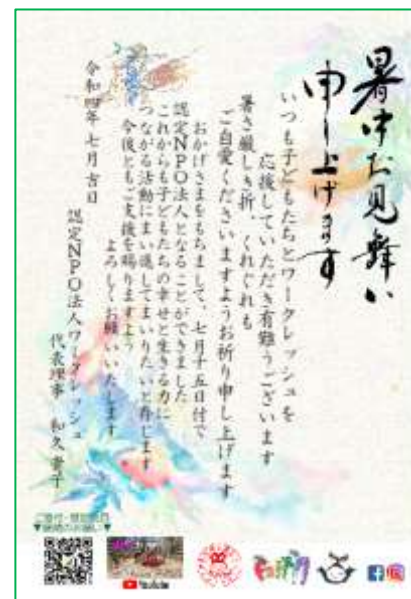 暑中お見舞い
申し上げます
いつも子どもたちとワークレッシュを
応援していただき有難うございます
暑さ厳しき折、くれぐれも
ご自愛くださいますようお祈り申し上げます
おかげさまをもちまして、七月十五日付で
認定NPO法人となることができました
これからも子どもたちの幸せと生きる力に
つながる活動にまい進してまいりたいと存じます
今後ともご支援を賜りますよう
よろしくお願いいたします
令和四年 七月 吉日
認定NPO法人ワークレッシュ
代表理事 和久 貴子
YouTube